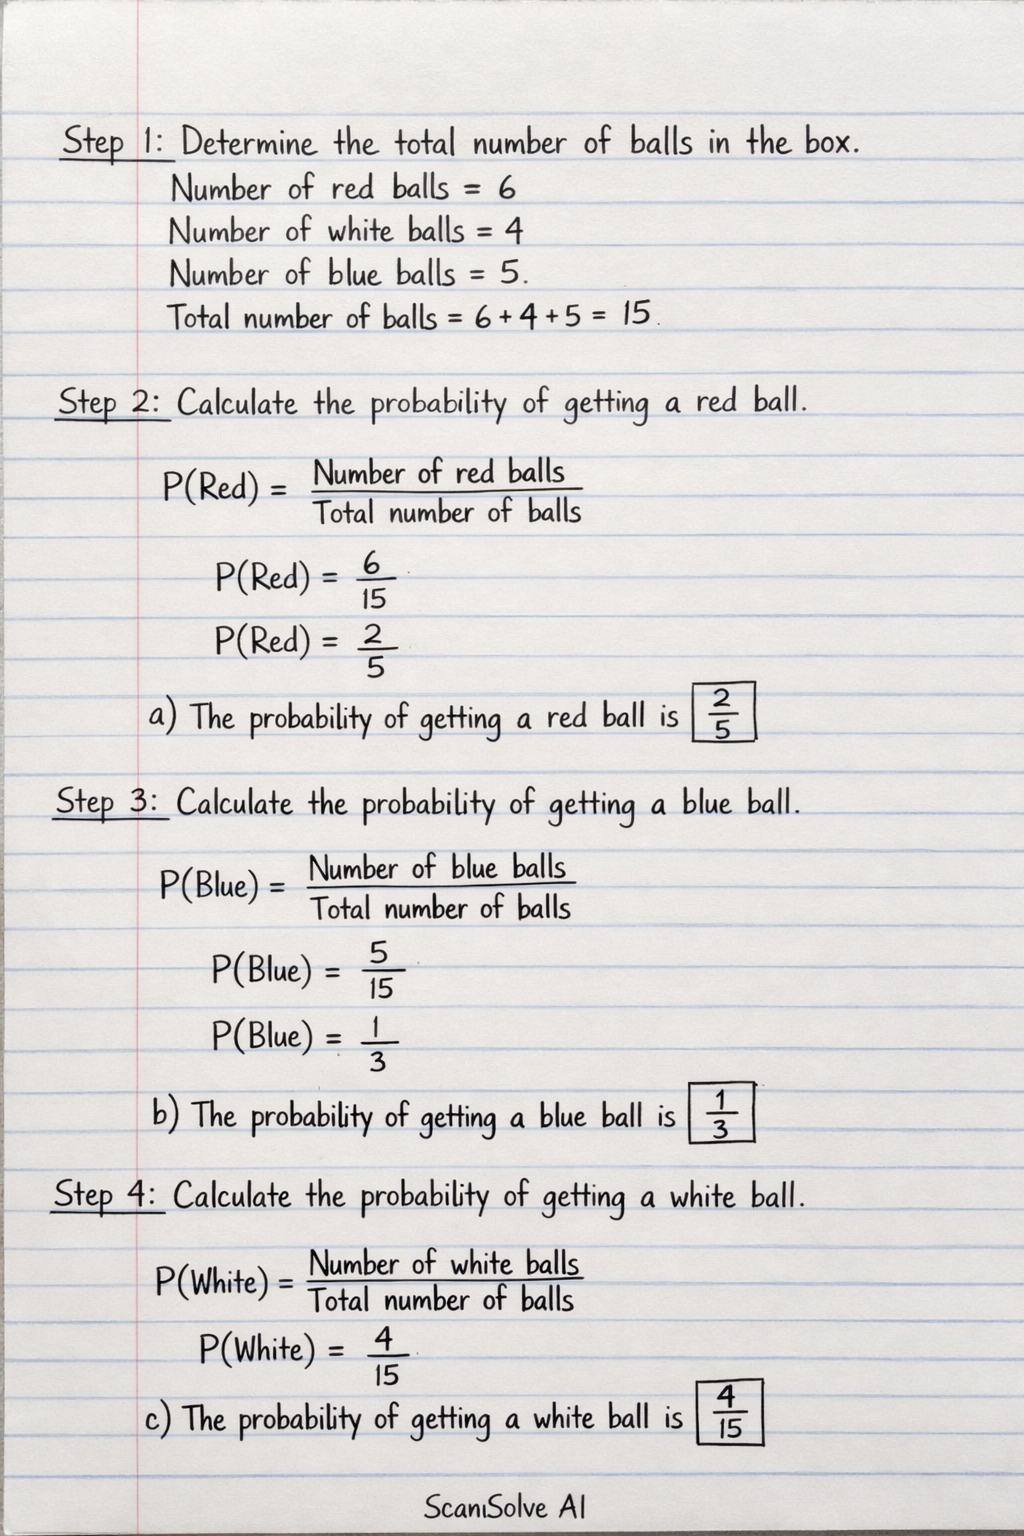 Step 1: Determine the total number of balls in the box.
Number of red balls = 6
Number of white balls = 4
Number of blue balls = 5.
Total number of balls = 6 + 4 + 5 = 15.
Step 2: Calculate the probability of getting a red ball.
P(Red) = Number of red balls / Total number of balls
P(Red) = 6/15
P(Red) = 2/5
a) The probability of getting a red ball is 2/5
Step 3: Calculate the probability of getting a blue ball.
P(Blue) = Number of blue balls / Total number of balls
P(Blue) = 5/15
P(Blue) = 1/3
b) The probability of getting a blue ball is 1/3
Step 4: Calculate the probability of getting a white ball.
P(White) = Number of white balls / Total number of balls
P(White) = 4/15
c) The probability of getting a white ball is 4/15
ScanıSolve AI